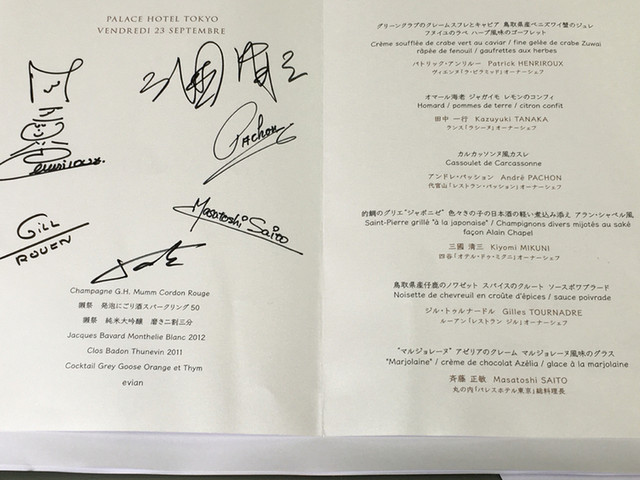 PALACE HOTEL TOKYO
VENDREDI 23 SEPTEMBRE
三國清三
PACHON
Masatoshi Saito
GILL
ROUEN
Champagne G.H. Mumm Cordon Rouge
獺祭 発泡にごり酒スパークリング50
獺祭 純米大吟醸 磨き二割三分
Jacques Bavard Monthelie Blanc 2012
Clos Badon Thunevin 2011
Cocktail Grey Goose Orange et Thym
evian
グリーンクラブのクレームスフレとキャビア 鳥取県産ベニズワイ蟹のジュレ
フヌイユのラペ ハーブ風味のゴーフレット
Crème soufflée de crabe vert au caviar / fine gelée de crabe Zuwai
râpée de fenouil / gaufrettes aux herbes
パトリック・アンリルー Patrick HENRIROUX
ヴィエンヌ「ラ・ピラミッド」オーナーシェフ
オマール海老 ジャガイモ レモンのコンフィ
Homard / pommes de terre / citron confit
田中 一行 Kazuyuki TANAKA
ランス「ラシーヌ」オーナーシェフ
カルカッソンヌ風カスレ
Cassoulet de Carcassonne
アンドレ・パッション André PACHON
代官山「レストラン・パッション」オーナーシェフ
的鯛のグリエ"ジャポニゼ" 色々きの子の日本酒の軽い煮込み添え アラン・シャペル風
Saint-Pierre grillé "à la japonaise" / Champignons divers mijotés au saké
façon Alain Chapel
三國 清三 Kiyomi MIKUNI
四谷「オテル・ドゥ・ミクニ」オーナーシェフ
鳥取県産仔鹿のノワゼット スパイスのクルート ソースポワブラード
Noisette de chevreuil en croûte d'épices / sauce poivrade
ジル・トゥルナードル Gilles TOURNADRE
ルーアン「レストラン ジル」オーナーシェフ
"マルジョレーヌ" アゼリアのクレーム マルジョレーヌ風味のグラス
"Marjolaine" / crème de chocolat Azélia / glace à la marjolaine
斉藤 正敏 Masatoshi SAITO
丸の内「パレスホテル東京」総料理長